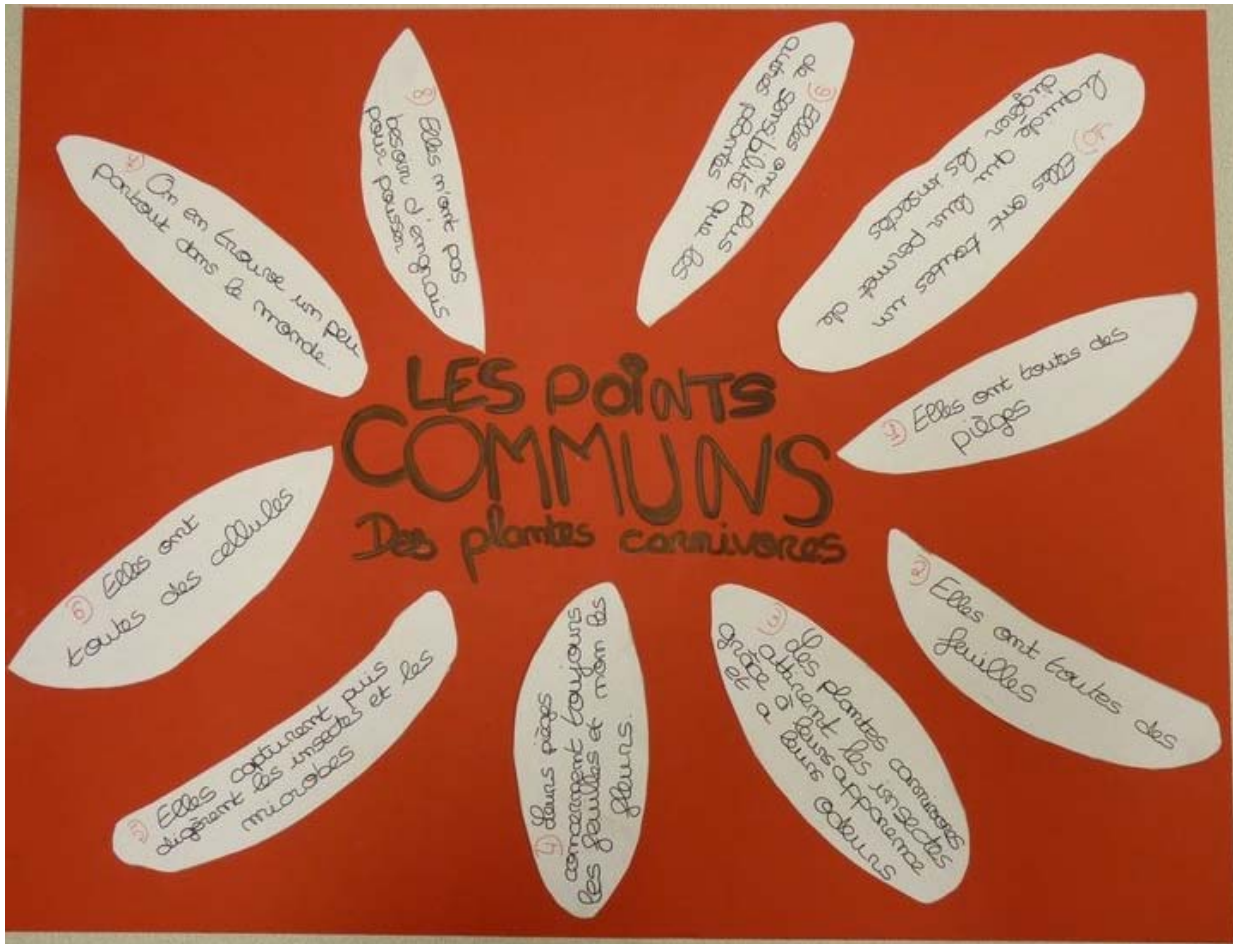 LES POINTS
COMMUNS
Des plantes carnivores
① Elles ont toutes des
pièges
② Elles ont toutes des
feuilles
③ Les plantes carnivores
attirent les insectes
grâce à leurs apparence
et a leurs odeurs
④ Leurs pièges
concernent toujours
les feuilles et non les
fleurs.
⑤ Elles capturent puis
digèrent les insectes et les
microbes
⑥ Elles ont
toutes des cellules
⑦ On en trouve un peu
partout dans le monde.
⑧ Elles n'ont pas
besoin d'engrais
pour pousser
⑨ Elles ont plus
de sensibilité que les
autres plantes
⑩ Elles ont toutes un
liquide qui leur permet de
digérer les insectes